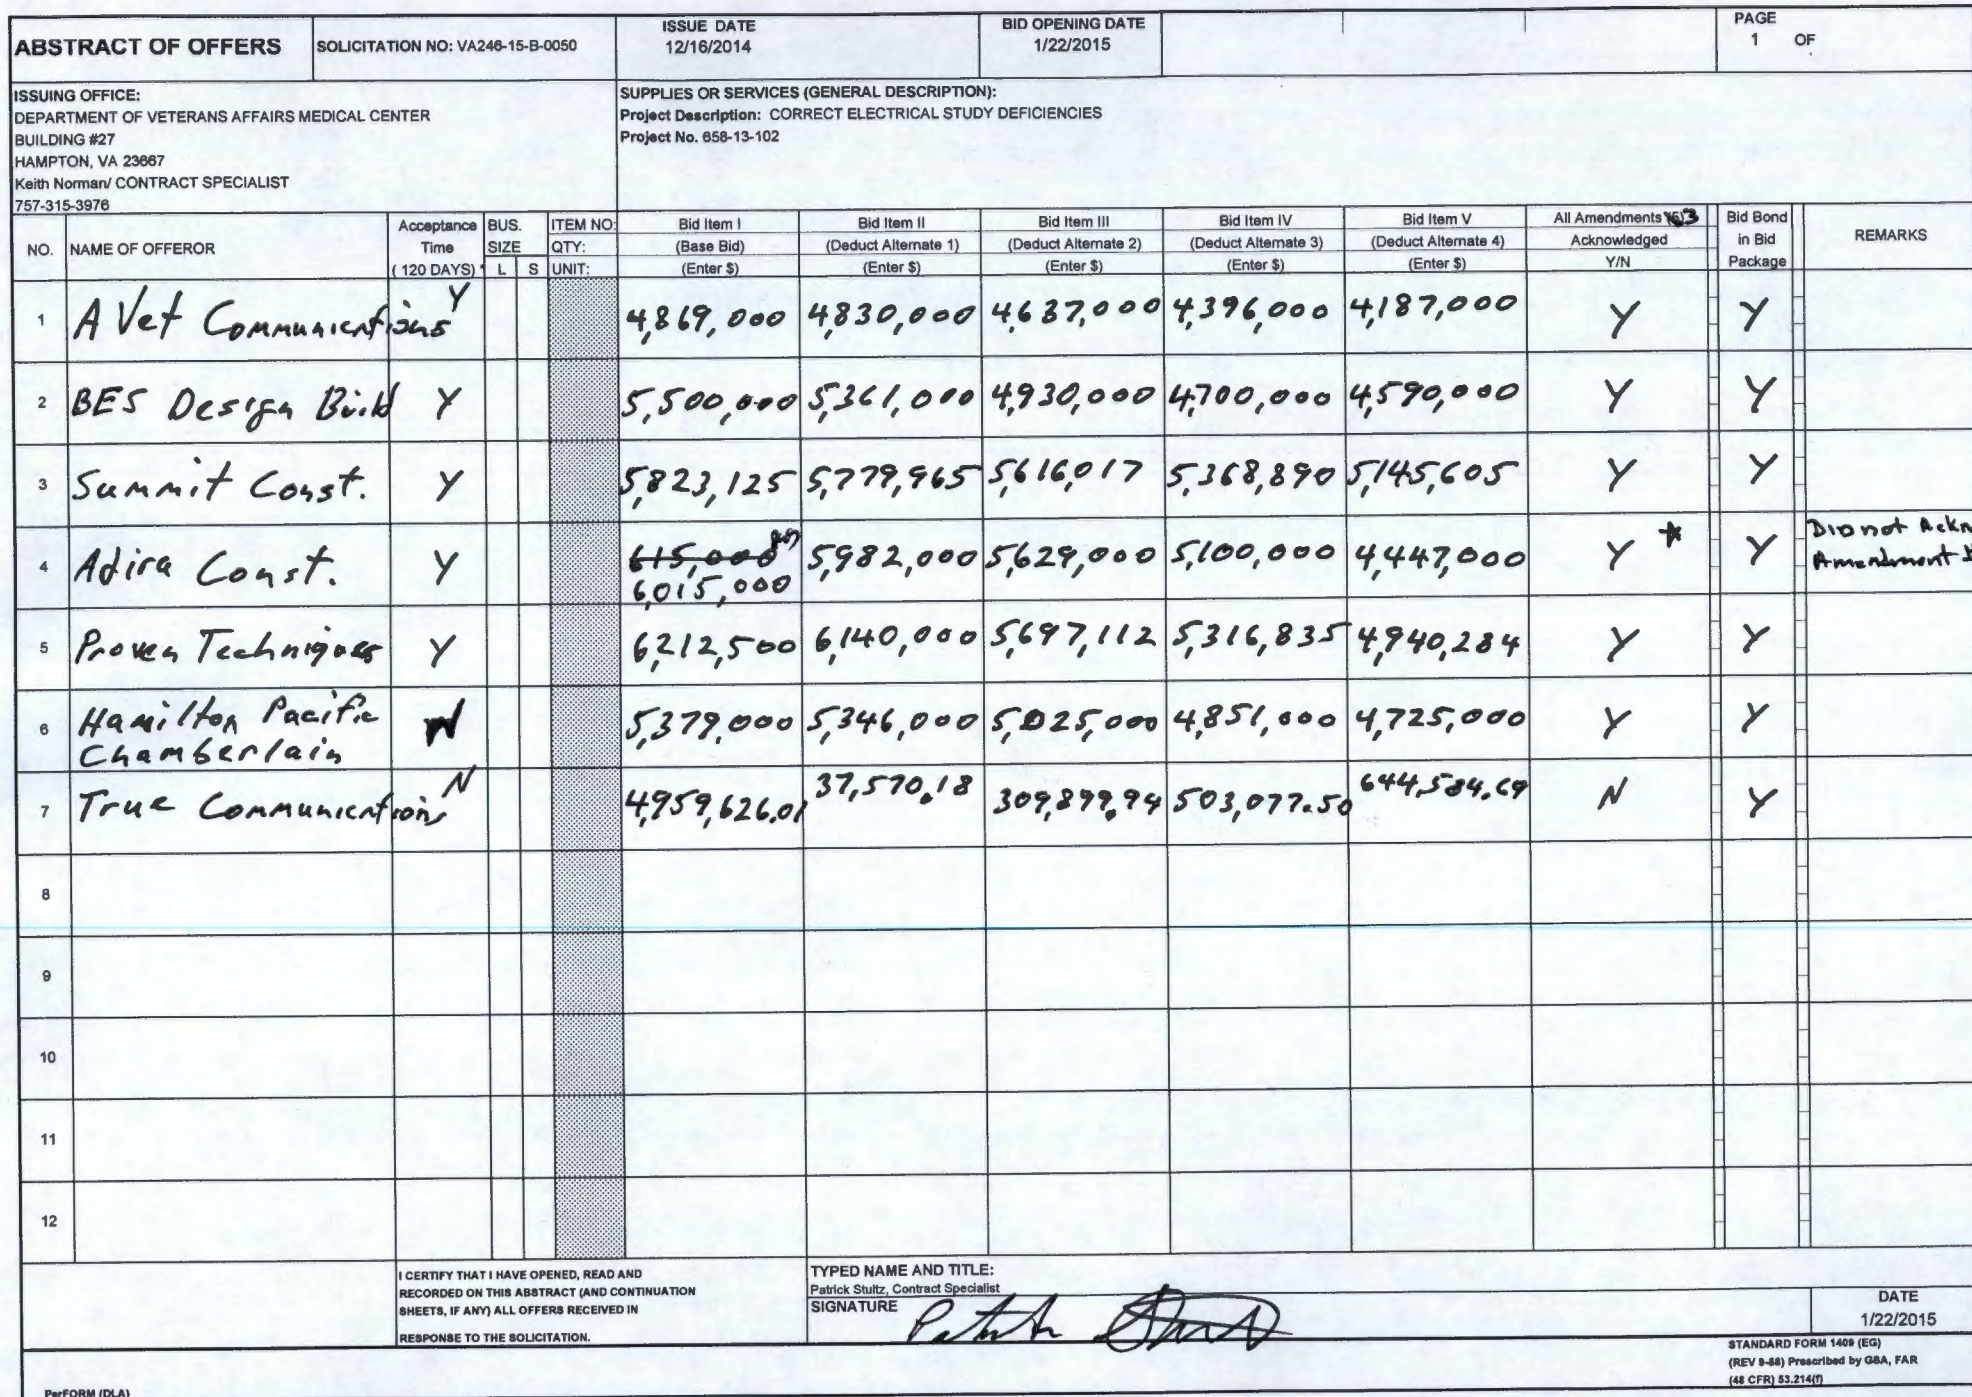 ABSTRACT OF OFFERS
SOLICITATION NO: VA246-15-B-0050
ISSUE DATE
12/16/2014
BID OPENING DATE
1/22/2015
PAGE
1 OF
ISSUING OFFICE:
DEPARTMENT OF VETERANS AFFAIRS MEDICAL CENTER
BUILDING #27
HAMPTON, VA 23667
Keith Norman/ CONTRACT SPECIALIST
757-315-3976
SUPPLIES OR SERVICES (GENERAL DESCRIPTION):
Project Description: CORRECT ELECTRICAL STUDY DEFICIENCIES
Project No. 658-13-102
NO. NAME OF OFFEROR
Acceptance
Time
( 120 DAYS)
BUS.
SIZE
L S
ITEM NO:
QTY:
UNIT:
Bid Item I
(Base Bid)
(Enter $)
Bid Item II
(Deduct Alternate 1)
(Enter $)
Bid Item III
(Deduct Alternate 2)
(Enter $)
Bid Item IV
(Deduct Alternate 3)
(Enter $)
Bid Item V
(Deduct Alternate 4)
(Enter $)
All Amendments 3
Acknowledged
Y/N
Bid Bond
in Bid
Package
REMARKS
1 A Vet Communications Y 4,869,000 4,830,000 4,637,000 4,396,000 4,187,000 Y Y
2 BES Design Build Y 5,500,000 5,361,000 4,930,000 4,700,000 4,590,000 Y Y
3 Summit Const. Y 5,823,125 5,779,965 5,616,017 5,368,890 5,145,605 Y Y
4 Adira Const. Y 615,000 5,982,000 5,629,000 5,100,000 4,447,000 Y * Y Did not Ackn
6,015,000 Amendment
5 Proven Techniques Y 6,212,500 6,140,000 5,697,112 5,316,835 4,940,284 Y Y
6 Hamilton Pacific N 5,379,000 5,346,000 5,025,000 4,851,000 4,725,000 Y Y
Chamberlain
7 True Communications N 4,959,626.01 37,570.18 309,899.94 503,077.50 644,584.69 N Y
8
9
10
11
12
I CERTIFY THAT I HAVE OPENED, READ AND
RECORDED ON THIS ABSTRACT (AND CONTINUATION
SHEETS, IF ANY) ALL OFFERS RECEIVED IN
RESPONSE TO THE SOLICITATION.
TYPED NAME AND TITLE:
Patrick Stultz, Contract Specialist
SIGNATURE
DATE
1/22/2015
STANDARD FORM 1409 (EG)
(REV 9-88) Prescribed by GSA, FAR
(48 CFR) 53.214(f)
PerFORM (DLA)